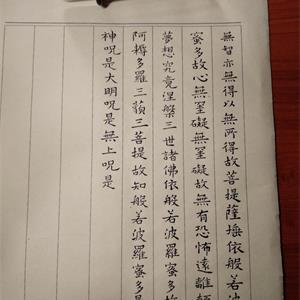 無智亦無得以無所得故菩提薩埵依般若波
蜜多故心無罣礙無罣礙故無有恐怖遠離顛
夢想究竟涅槃三世諸佛依般若波羅蜜多故
阿耨多羅三藐三菩提故知般若波羅蜜多是
神呪是大明呪是無上呪是